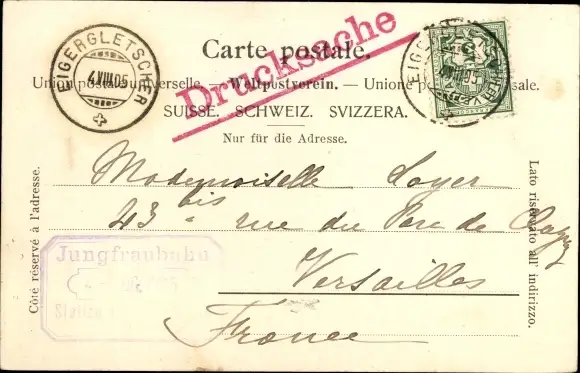 Carte postale.
Drucksache
EIGERGLETSCHER
4.VIII.05
EIGERGLETSCHER
VIII.05
Union postale universelle. — Weltpostverein. — Unione postale universale.
SUISSE. SCHWEIZ. SVIZZERA.
Nur für die Adresse.
Côté réservé à l'adresse.
Lato riservato all' indirizzo.
Mademoiselle Loyer
43 bis rue du Parc de
Versailles
France
Jungfraubahn
Station